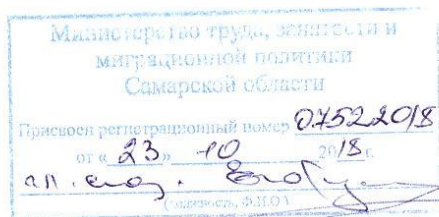 Министерство труда, занятости и
миграционной политики
Самарской области
Присвоен регистрационный номер 07522018
от « 23 » 10 2018 г.
гл. спец.
(должность, Ф.И.О.)